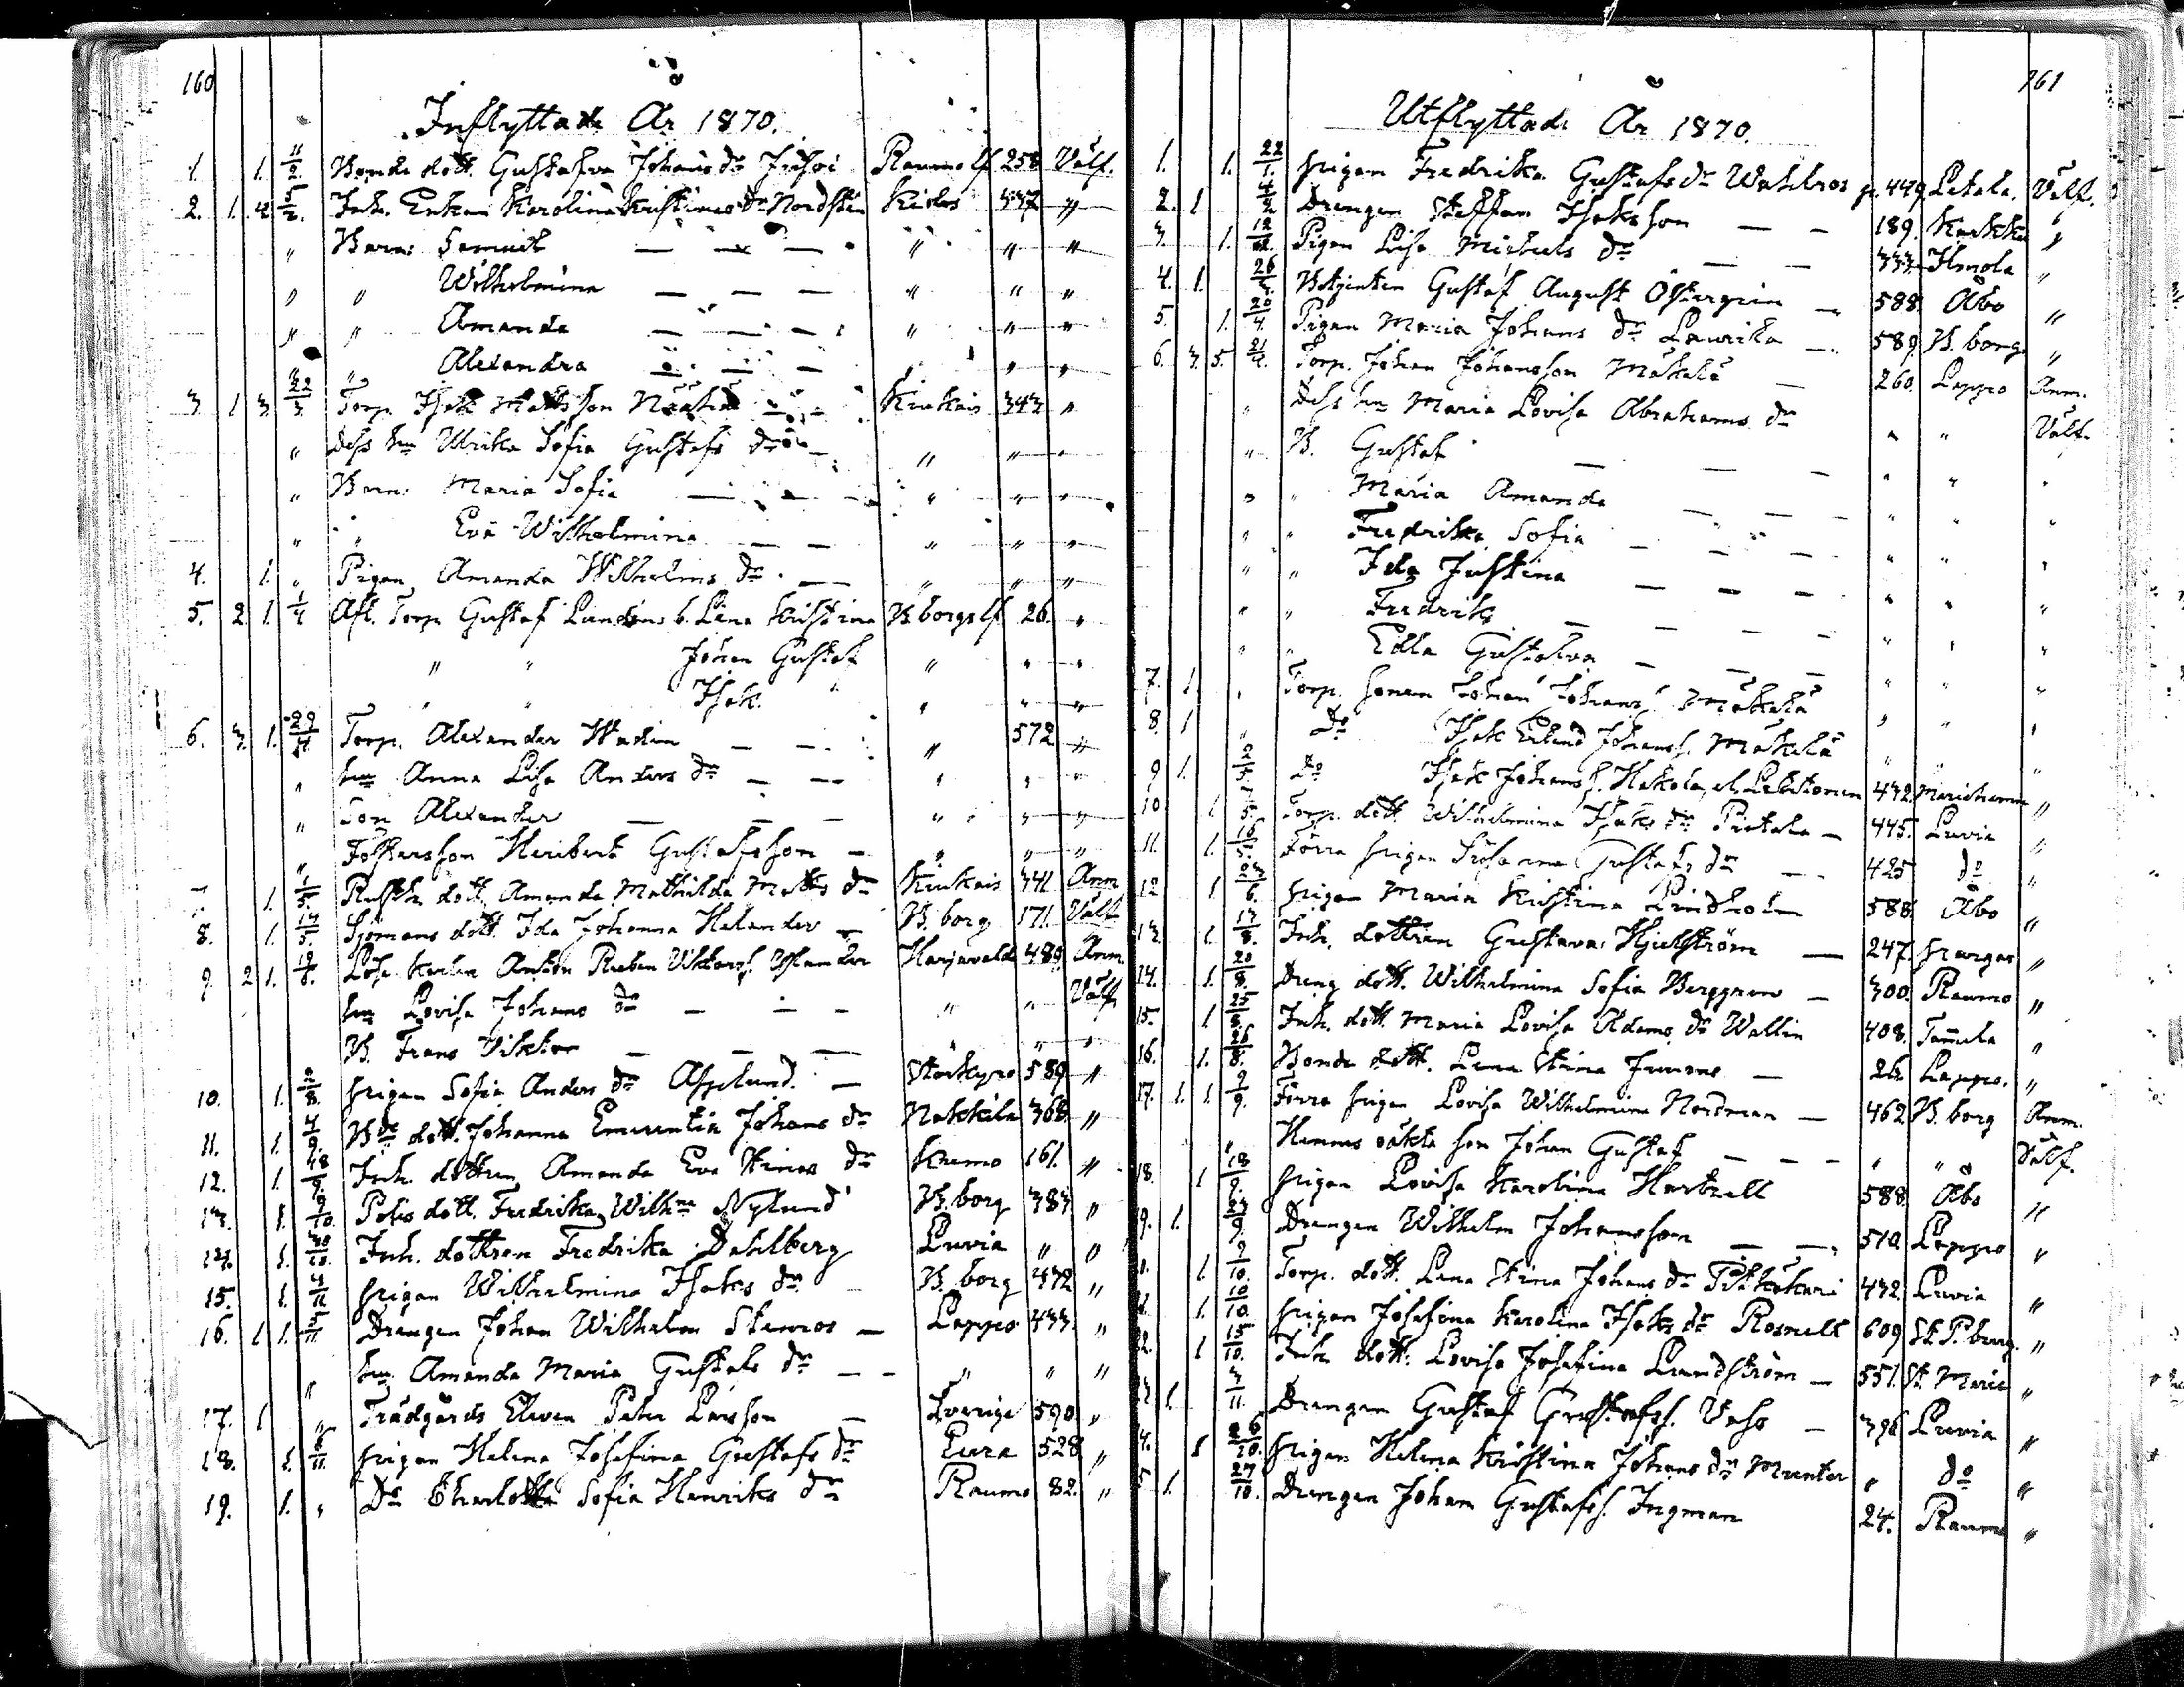 160
Inflyttade År 1870.
1. 1. 11/2. Bonde dott. Gustafva Johans dr Raumo lf 258 Välf.
2. 1. 4. 5/3. Inh. Enkan Karolina Kristinas dr Nordstén Kides 337 "
" Barn: Samuel — — — " " "
" " Wilhelmina — — — " " "
" " Amanda — — — " " "
" " Alexandra — — — " " "
3 1 3 22/3 Torp. Isak Mattsson — Kiukais 343 "
" dess hu Ulrika Sofia Gustafs dr — " " "
" Barn: Maria Sofia — — — " " "
" " Eva Wilhelmina — — " " "
4. 1. " Pigan Amanda Wilhelms dr — " " "
5. 2 1. 1/4 Afl. Torp. Gustaf b. Lena Kristina B.borgs lf 26. "
" " Johan Gustaf " " "
" " Isak " " "
6. 3. 1. 29/4 Torp. Alexander Wadin — — " 572 "
" hu Anna Lisa Anders dr — — " " "
" Son Alexander — — — " " "
" Fostersson Heribert Gustafsson — " " "
7. 1. 1/5. dott. Amanda Mathilda Matts dr Kiukais 341 Anm.
8. 1. 14/5. Sjömans dott. Ida Johanna Helander — B.borg 171. Välf.
9. 2 1. 19/8. karlen Anton Ruben Harjavalda 489 Anm.
hu Lovisa Johans dr — — — " " Välf.
B. Frans Viktor — — — " " "
10. 1. Pigan Sofia Anders dr Asplund. — Storkyro 589 "
11. 1. 4/9. Bde dott. Johanna Emerentia Johans dr Nakkila 368. "
12. 1. 18/9. Inh. dottren Amanda Eva Stinas dr Kumo 161. "
13. 1. 9/10. Polis dott. Fredrika Wilhna Nylund B.borg 383 "
14. 1. 30/10. Inh. dottren Fredrika Dahlberg Luvia " "
15. 1. 4/11 Pigan Wilhelmina Isaks dr — B.borg 472 "
16. 1. 1. Drängen Johan Wilhelm Stenros — Lappo 433. "
" hu Amanda Maria Gustafs dr — — " " "
17. 1 " Trädgårds Eleven Peter Larsson — Sverige 590. "
18. 1. Pigan Helena Josefina Gustafs dr Eura 528 "
19. 1. " Do Charlotta Sofia Henriks dr Raumo 82. "
161
Utflyttade År 1870.
1. 1. 22/1. Pigan Fredrika Gustafs dr Wahlroos p. 449 Letala. Välf.
2. 1 Drängen Steffan Isaksson — — 189. Karkku "
3. 1. Pigan Lisa Michels dr — — 333. Ilmola "
4. 1. Gustaf August Östergrén — 588. Åbo "
5. 1. 20/4. Pigan Maria Johans dr Laurila — 589 B.borg "
6. 3. 5. 21/4. Torp. Johan Johansson Mäkelä — 260. Lappo Anm.
" Dess hu Maria Lovisa Abrahams dr " " Välf.
" B. Gustaf — — — " " "
" " Maria Amanda — — — " " "
" " Fredrika Sofia — — — " " "
" " Ida Justina — — — " " "
" " Fredrik — — — — " " "
" " Edla Gustafva — — — " " "
7. 1. " Torp. sonen Johan Johans. Mäkelä " " "
8. 1 " Do Isak Erland Johanss. Mäkelä " " "
9 1. 2/5. Do Isak Johanss. Hakola, el. Lehtonen 472. Mariehamn "
10 1 Torp. dott. Wilhelmina Isaks dr Pietala — 445. Luvia "
11. 1. 16/5. Förra Pigan Susanna Gustafs dr — 425 do "
12 1 Pigan Maria Kristina Lindholm 588. Åbo "
13. 1. 17/8. Inh. dottren Gustava Hjulström — 247. Pargas "
14. 1. 20/8. Dräng dott. Wilhelmina Sofia Berggren — 300. Raumo "
15. 1 25/8. Inh. dott. Maria Lovisa Adams dr Wallin 408. Tam̄ela "
16. 1. 26/8. Bonde dott. Lena Stina — 26. Lappo. "
17. 1. 1 9/9. Förra Pigan Lovisa Wilhelmina Nordman — 462. B.borg Anm.
" Hennes oäkta son Johan Gustaf — — — " " Välf.
18. 1 18/9. Pigan Lovisa Karolina Hartzell 588. Åbo "
9. 1. 23/9. Drängen Wilhelm Johansson — — 510. Lappo "
1. 9/10. Torp. dott. Lena Stina Johans dr 472. Luvia "
1. 10/10. Pigan Josefina Karolina Isaks dr Rosnell 609 St. P.burg. "
2. 1 15/10. Inh. dott. Lovisa Josefina Lundström — 551. St. Marie "
3. 1. 3/11. Drängen Gustaf Gustafss. — 396 Luvia "
4. 1 26/10. Pigan Helena Kristina Johans dr Munter " do "
5 1. 27/10. Drängen Johan Gustafss. Ingman 24. Raumo "